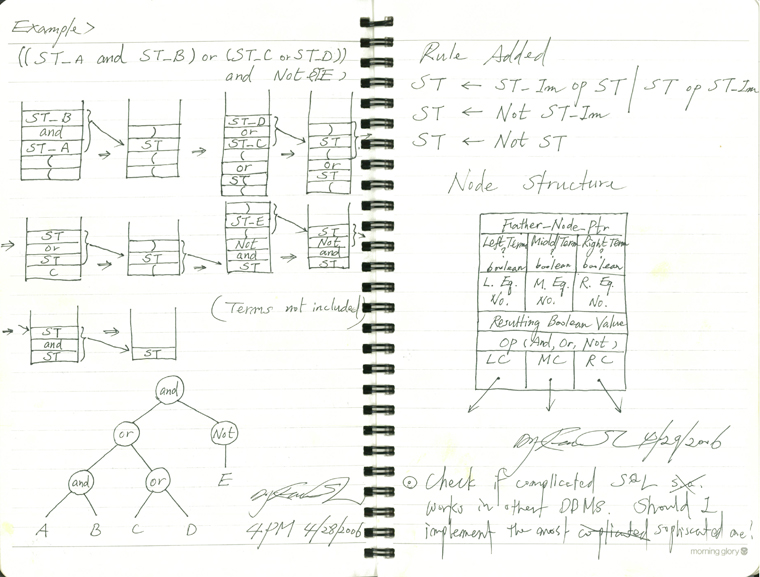 Example>
((ST_A and ST_B) or (ST_C or ST_D))
and Not(
ST_B
and
ST_A
(
(
)
ST
(
(
ST_D
or
ST_C
(
or
ST
(
)
ST
(
or
ST
(
ST
or
ST
)
ST
(
)
ST_E
(
Not
and
ST
ST
Not
and
ST
(Terms not included)
ST
and
ST
ST
and
or
Not
and
or
E
A B C D
4PM 4/28/2006
Rule Added
ST ← ST_Im op ST / ST op ST_Im
ST ← Not ST_Im
ST ← Not ST
Node Structure
Father_Node_Ptr
Left Term Midd Term Right Term
? ? ?
boolean boolean boolean
L. Eq. M. Eq. R. Eq.
No. No. No.
Resulting Boolean Value
Op (And, Or, Not)
LC MC RC
4/29/2006
Check if complicated SQL
works in other DBMS. Should I
implement the most complicated sophiscated one!
morning glory